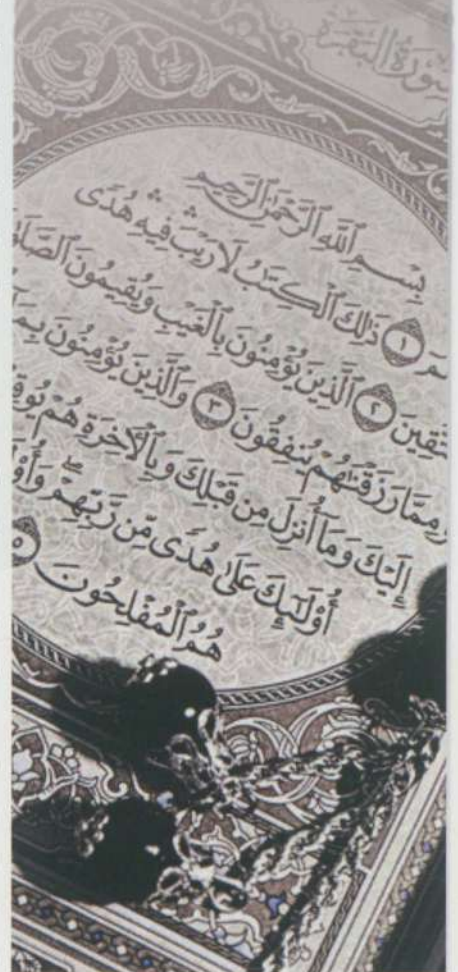 سورة البقرة
بِسْمِ اللَّهِ الرَّحْمَٰنِ الرَّحِيمِ
ـم ١ ذَٰلِكَ الْكِتَابُ لَا رَيْبَ فِيهِ هُدًى
ـتَّقِينَ ٢ الَّذِينَ يُؤْمِنُونَ بِالْغَيْبِ وَيُقِيمُونَ الصَّلَا
وَمِمَّا رَزَقْنَاهُمْ يُنفِقُونَ ٣ وَالَّذِينَ يُؤْمِنُونَ بِمَا
إِلَيْكَ وَمَا أُنزِلَ مِن قَبْلِكَ وَبِالْآخِرَةِ هُمْ يُوقِ
أُولَٰئِكَ عَلَىٰ هُدًى مِّن رَّبِّهِمْ وَأُو
هُمُ الْمُفْلِحُونَ ٥